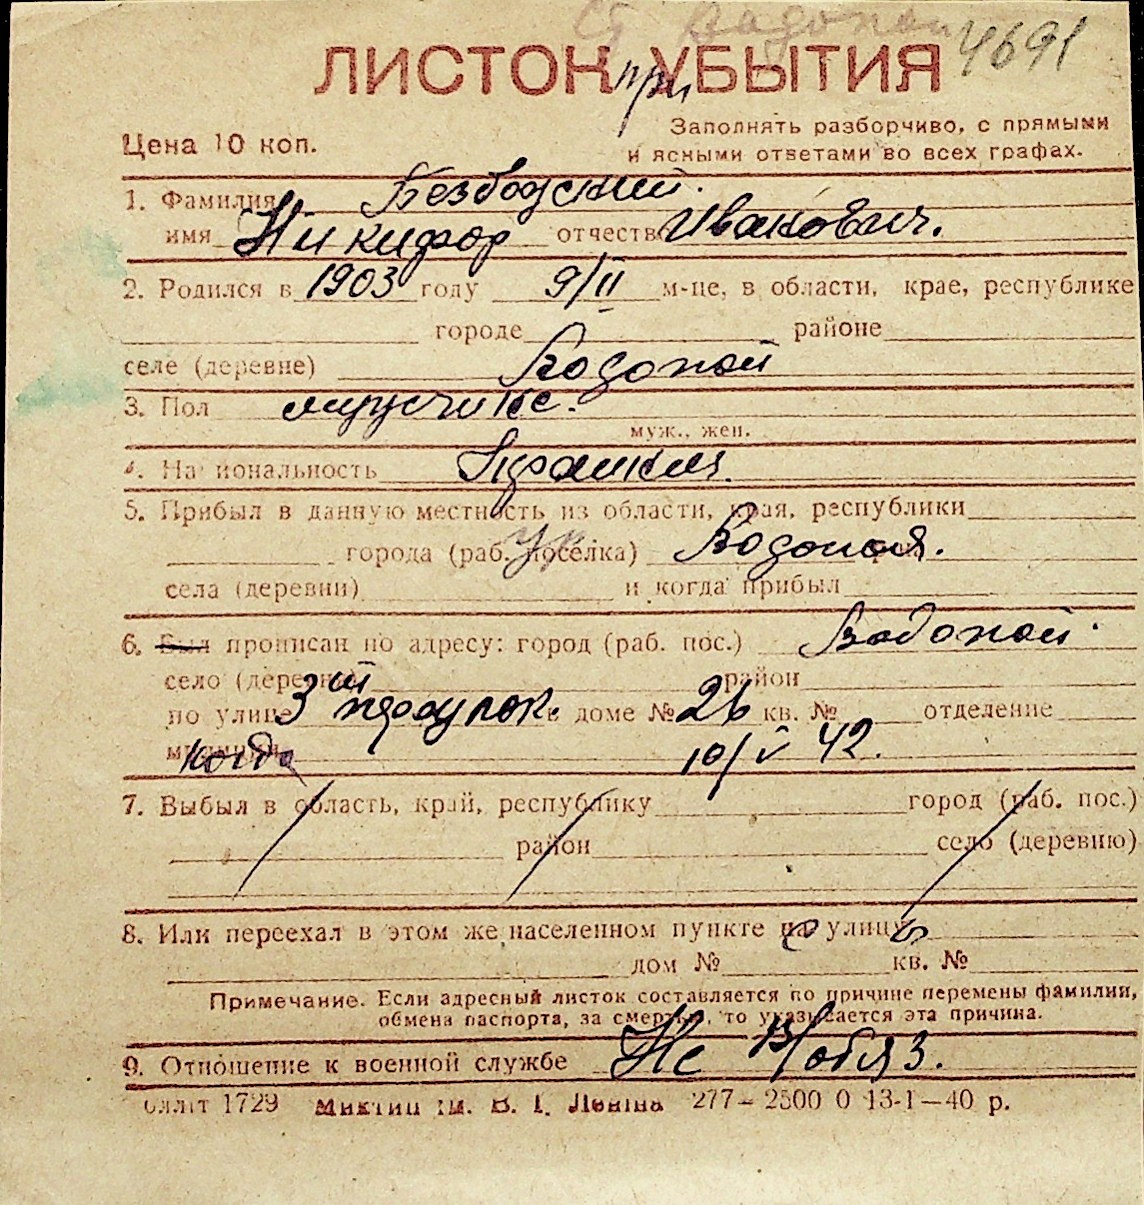 Ст Вадопой
4691
ЛИСТОК УБЫТИЯ
при
Цена 10 коп.
Заполнять разборчиво, с прямыми
и ясными ответами во всех графах.
1. Фамилия Безводский.
имя Никифор отчество Иванович.
2. Родился в 1903 году 9/II м-це, в области, крае, республике
городе районе
селе (деревне) Водопой
3. Пол
муж., жен.
4. Национальность
5. Прибыл в данную местность из области, края, республики
города (раб. поселка) Водопоя.
села (деревни) и когда прибыл
6. Был прописан по адресу: город (раб. пос.) Водопой.
село (деревня) район
по улице 3ий в доме № 26 кв. № отделение
милиции когда 10/V 42.
7. Выбыл в область, край, республику город (раб. пос.)
район село (деревню)
8. Или переехал в этом же населенном пункте на улицу
дом № кв. №
Примечание. Если адресный листок составляется по причине перемены фамилии,
обмена паспорта, за смертью, то указывается эта причина.
9. Отношение к военной службе Не В/обяз.
1729 ім. В. І. Леніна 277—2500 0 13-1—40 р.